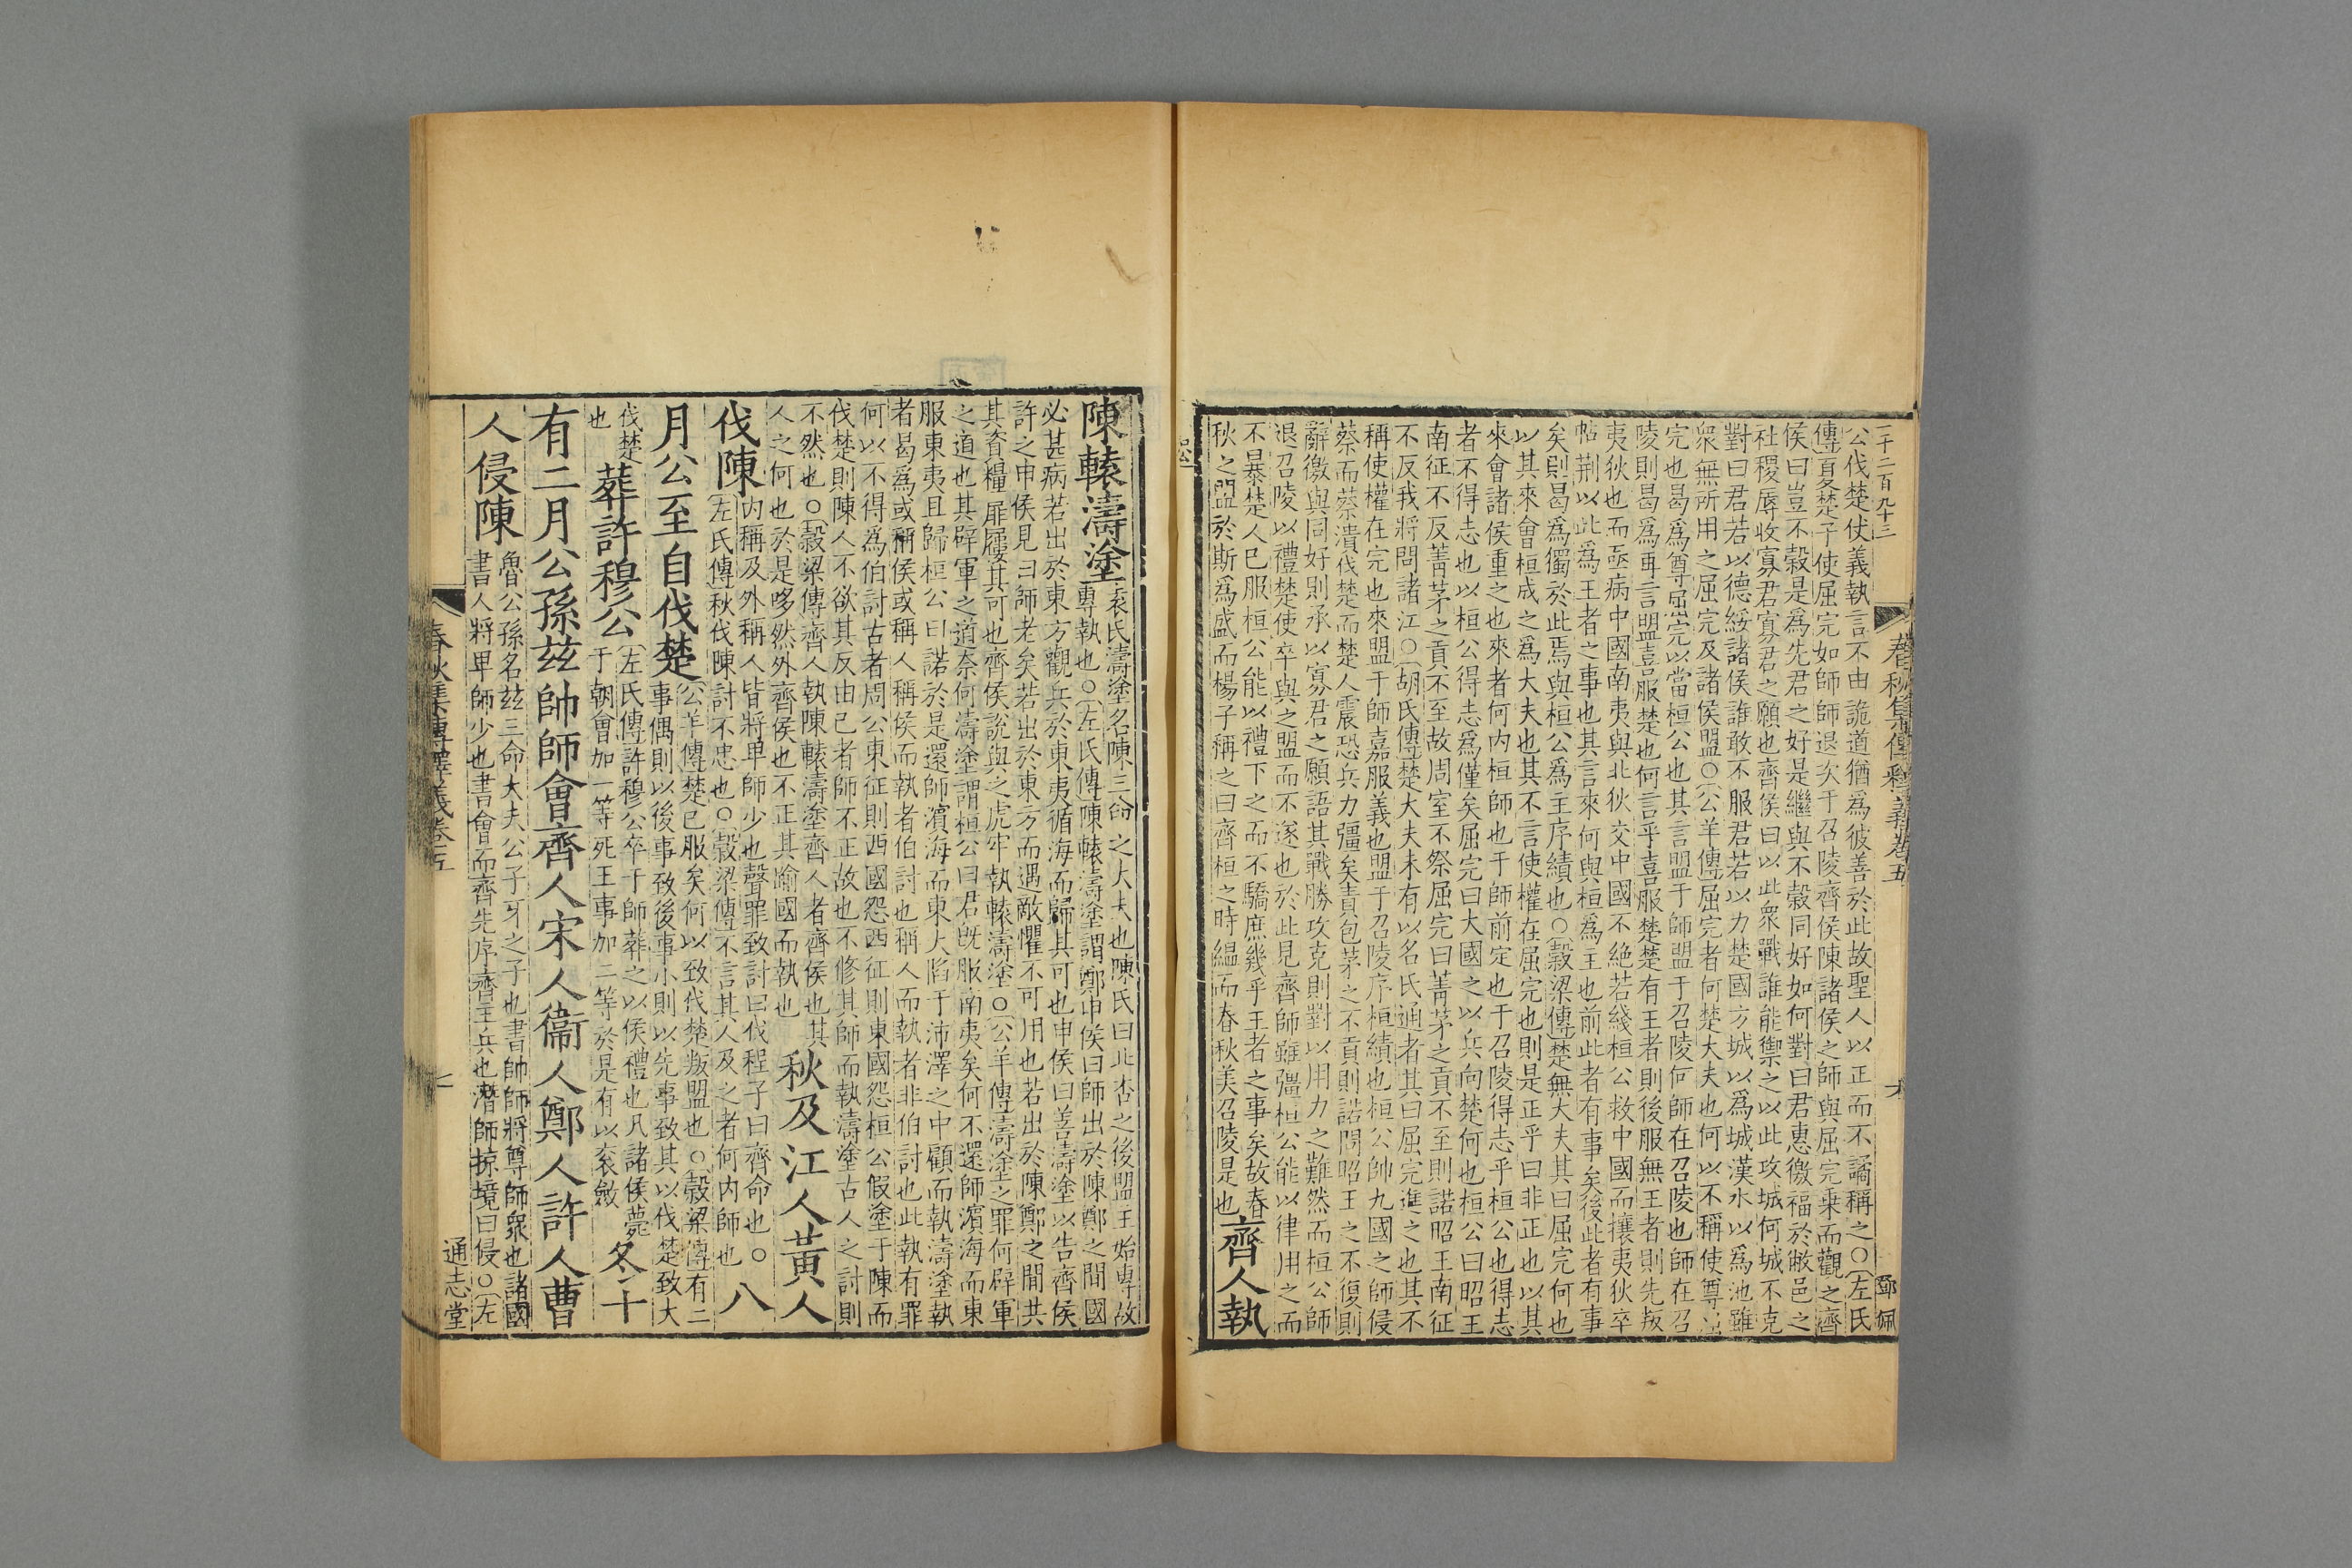 一千二百九十三
春秋集傳釋義卷五
六
鄧佩
公伐楚仗義執言不由詭道猶爲彼善於此故聖人以正而不譎稱之○左氏
傳夏楚子使屈完如師師退次于召陵齊侯陳諸侯之師與屈完乗而觀之齊
侯曰豈不穀是爲先君之好是繼與不穀同好如何對曰君惠徼福於敝邑之
社稷辱收寡君寡君之願也齊侯曰以此衆戰誰能禦之以此攻城何城不克
對曰君若以德綏諸侯誰敢不服君若以力楚國方城以爲城漢水以爲池雖
衆無所用之屈完及諸侯盟○公羊傳屈完者何楚大夫也何以不稱使尊屈
完也曷爲尊屈完以當桓公也其言盟于師盟于召陵何師在召陵也師在召
陵則曷爲再言盟喜服楚也何言乎喜服楚楚有王者則後服無王者則先叛
夷狄也而亟病中國南夷與北狄交中國不絶若綫桓公救中國而攘夷狄卒
帖荆以此爲王者之事也其言來何與桓爲主也前此者有事矣後此者有事
矣則曷爲獨於此焉與桓公爲主序績也○穀梁傳楚無大夫其曰屈完何也
以其來會桓成之爲大夫也其不言使權在屈完也則是正乎曰非正也以其
來會諸侯重之也來者何内桓師也于師前定也于召陵得志乎桓公也得志
者不得志也以桓公得志爲僅矣屈完曰大國之以兵向楚何也桓公曰昭王
南征不反菁茅之貢不至故周室不祭屈完曰菁茅之貢不至則諾昭王南征
不反我將問諸江○胡氏傳楚大夫未有以名氏通者其曰屈完進之也其不
稱使權在完也來盟于師嘉服義也盟于召陵序桓績也桓公帥九國之師侵
蔡而蔡潰伐楚而楚人震恐兵力彊矣責包茅之不貢則諾問昭王之不復則
辭徼與同好則承以寡君之願語其戰勝攻克則對以用力之難然而桓公師
退召陵以禮楚使卒與之盟而不遂也於此見齊師雖彊桓公能以律用之而
不暴楚人已服桓公能以禮下之而不驕庶幾乎王者之事矣故春
秋之盟於斯爲盛而楊子稱之曰齊桓之時緼而春秋美召陵是也齊人執
陳轅濤塗袁氏濤塗名陳三命之大夫也陳氏曰此杏之後盟王始專故
專執也○左氏傳陳轅濤塗謂鄭申侯曰師出於陳鄭之間國
必甚病若出於東方觀兵於東夷循海而歸其可也申侯曰善濤塗以告齊侯
許之申侯見曰師老矣若出於東方而遇敵懼不可用也若出於陳鄭之間共
其資糧屝屨其可也齊侯說與之虎牢執轅濤塗○公羊傳濤塗之罪何辟軍
之道也其辟軍之道奈何濤塗謂桓公曰君既服南夷矣何不還師濱海而東
服東夷且歸桓公曰諾於是還師濱海而東大陷于沛澤之中顧而執濤塗執
者曷爲或稱侯或稱人稱侯而執者伯討也稱人而執者非伯討也此執有罪
何以不得爲伯討古者周公東征則西國怨西征則東國怨桓公假塗于陳而
伐楚則陳人不欲其反由己者師不正故也不修其師而執濤塗古人之討則
不然也○穀梁傳齊人執陳轅濤塗齊人者齊侯也其
人之何也於是哆然外齊侯也不正其踰國而執也秋及江人黃人
伐陳左氏傳秋伐陳討不忠也○穀梁傳不言其人及之者何内師也
内稱及外稱人皆將卑師少也聲罪致討曰伐程子曰齊命也○八
月公至自伐楚公羊傳楚已服矣何以致伐楚叛盟也○穀梁傳有二
事偶則以後事致後事小則以先事致其以伐楚致大
伐楚
也葬許穆公左氏傳許穆公卒于師葬之以侯禮也凡諸侯薨
于朝會加一等死王事加二等於是有以衮斂冬十
有二月公孫茲帥師會齊人宋人衞人鄭人許人曹
人侵陳魯公孫名茲三命大夫公子牙之子也書帥師將尊師衆也諸國
書人將卑師少也書會而齊先序齊主兵也潛師掠境曰侵○左
春秋集傳釋義卷五
七
通志堂